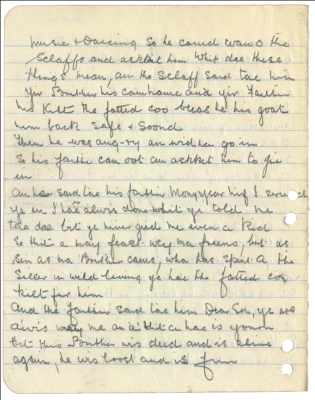 music & Dancing So he cawd wan o the
Sclaffs and asktet him Whit dae these
things mean, an the Sclaff said tae him
Yir Brither his cam hame and yir Faither
his kilt the fatted coo becas he his goat
him back Safe & Soond
Then he was ang-ry an wid na go in
So his faither cam oot an asktet him to gie
in
An he said tae his faither Mony year hif I served
ye an I hae alwis done whit ye told me
tae dae bit ye never gied me even a Kid
So hit a may feast wey ma freens, but as
Sin as ma Brither came, who has spent a the
Seller in wild living ye hae the fatted coo
kilt for him
And the faither said tae him Dear Son, ye are
alwis wey me an a' hit a hae is yours
bit this Brither wis deid and is alive
again, he wis loost and is fun